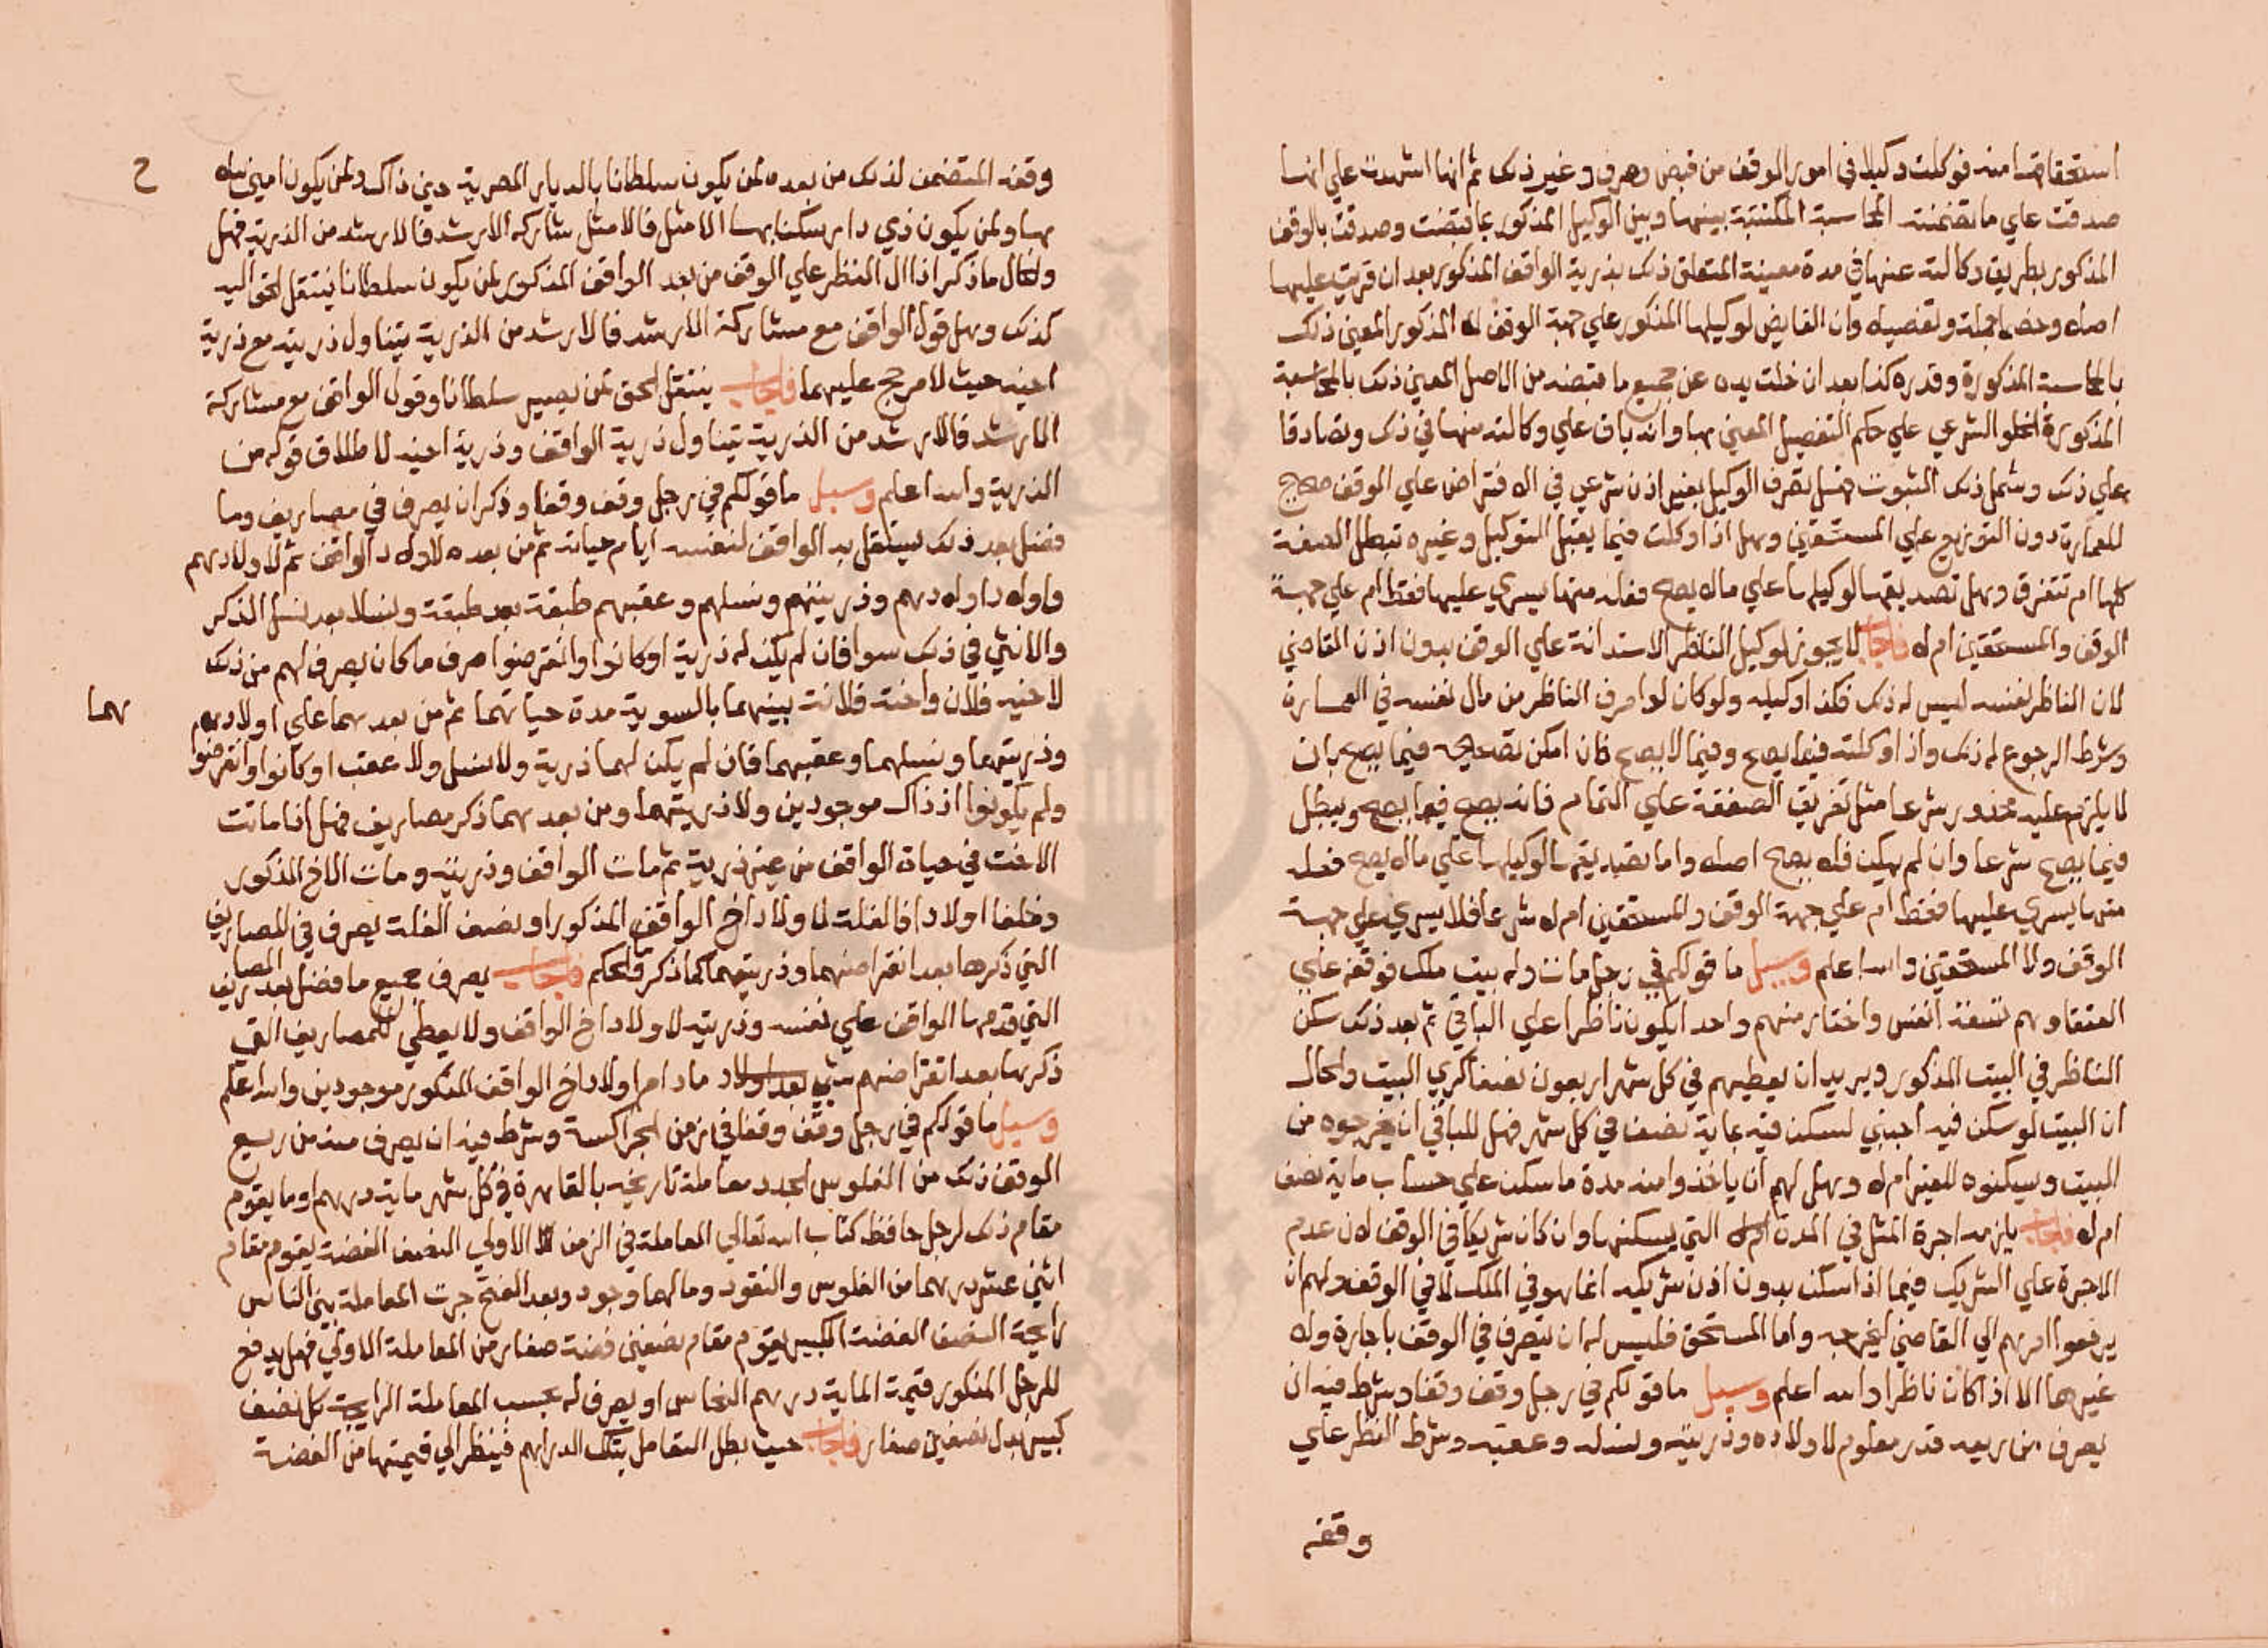 استحقاقها منه فوكلت وكيلا في امور الوقف من قبض وصرف وغير ذلك ثم انها اشهدت علي انها
صدقت علي ما تضمنته المحاسبة المكتتبة بينها وبين الوكيل المذكور بما قبضت وصدقت بالوقف
المذكور بطريق وكالته عنها في مدة معينة المتعلق ذلك بذرية الواقف المذكور بعد ان قريت عليها
اصله وخصمه جملة وتفصيله وان الفايض لوكيلها المذكور علي جهة الوقف المذكور المعين ذلك
بالمحاسبة المذكورة وقدره كذا بعد ان خلت يده عن جميع ما قبضه من الاصل المعين ذلك بالمحاسبة
المذكورة الخلو الشرعي علي حكم التفصيل المعين بها وانه باق علي وكالته عنها في ذلك وتصادقا
علي ذلك وشمل ذلك الثبوت فهل تصرف الوكيل بغير اذن شرعي في الاقتراض علي الوقف صحيح
للعمارة دون التوزيع علي المستحقين وهل اذا وكلت فيما يقبل التوكيل وغيره تبطل الصفقة
كلها ام تتفرق وهل تصديقها لوكيلها علي ماله يصح فعله منها يسري عليها فقط ام علي جهة
الوقف والمستحقين ام لا فاجاب لا يجوز لوكيل الناظر الاستدانة علي الوقف بدون اذن القاضي
لان الناظر نفسه ليس له ذلك فكذا وكيله ولو كان لو اصرف الناظر من مال نفسه في العمارة
وشرط الرجوع له ذلك واذا وكلته فيما يصح وفيما لا يصح فان امكن تصحيحه فيما يصح بان
لا يلزم عليه محذور شرعا مثل تفريق الصفقة علي التمام فانه يصح فيما يصح ويبطل
فيما يصح شرعا وان لم يمكن فلا يصح اصلا واما تصديقها لوكيلها علي ماله يصح فعله
منها يسري عليها فقط ام علي جهة الوقف والمستحقين ام لا شرعا فلا يسري علي جهة
الوقف ولا المستحقين والله اعلم وسيل ما قولكم في رجل مات وله بيت ملك فوقفه علي
العتقا وهم تسعة انفس واختار منهم واحد ايكون ناظرا علي الباقي ثم بعد ذلك سكن
الناظر في البيت المذكور ويريد ان يعطيهم في كل شهر اربعون نصفا كري البيت والحال
ان البيت لو سكن فيه اجنبي لسكن فيه بماية نصف في كل شهر فهل للباقي ان يخرجوه من
البيت ويسكنوه للغير ام لا وهل لهم ان ياخذوا منه مدة ما سكن علي حساب ماية نصف
ام لا فاجاب يلزمه اجرة المثل في المدة التي يسكنها وان كان شريكا في الوقف لان عدم
الاجرة علي الشريك فيما اذا سكن بدون اذن شريكه انما هو في الملك لا في الوقف ولهم ان
يرفعوا امرهم الي القاضي ليخرجه واما المستحق فليس له ان يتصرف في الوقف باجارة ولا
غيرها الا اذا كان ناظرا والله اعلم وسيل ما قولكم في رجل وقف وقفا وشرط فيه ان
يصرف من ريعه قدر معلوم لاولاده وذريته ونسله وعقبه وشرط النظر علي
وقفه
وقفه المتضمن لذلك من بعده لمن يكون سلطانا بالديار المصرية حين ذاك ولمن يكون امين
بها ولمن يكون ذي دار سكنا بها الامثل فالامثل شاركه الارشد فالارشد من الذرية فهل
والحال ما ذكر اذا ال النظر علي الوقف من بعد الواقف المذكور لمن يكون سلطانا ينتقل الحق اليه
كذلك وهل قول الواقف مع مشاركة الارشد فالارشد من الذرية يتناول ذريته مع ذرية
اخيه حيث لا مرجح عليهما فاجاب ينتقل الحق لمن يصير سلطانا وقول الواقف مع مشاركة
الارشد فالارشد من الذرية يتناول ذرية الواقف وذرية اخيه لاطلاق قوله من
الذرية والله اعلم وسيل ما قولكم في رجل وقف وقفا وذكر ان يصرف في مصاريف وما
فضل بعد ذلك يستقل به الواقف لنفسه ايام حياته ثم من بعده لاولاد الواقف ثم لاولادهم
واولاد اولادهم وذريتهم ونسلهم وعقبهم طبقة بعد طبقة ونسلا بعد نسل الذكر
والانثي في ذلك سوا فان لم يكن له ذرية او كانوا وانقرضوا صرف ما كان يصرف لهم من ذلك
لاخيه فلان واخته فلانة بينهما بالسوية مدة حياتهما ثم من بعدهما علي اولادهم
هما
وذريتهما ونسلهما وعقبهما فان لم يكن لهما ذرية ولا نسل ولا عقب او كانوا وانقرضوا
ولم يكونوا اذ ذاك موجودين ولا ذريتهما ومن بعدهما ذكر مصاريف فهل اذا ماتت
الاخت في حياة الواقف من غير ذرية ثم مات الواقف وذريته ومات الاخ المذكور
وخلف اولادا فالغلة لاولاد اخ الواقف المذكور او نصف الغلة يصرف في المصاريف
التي ذكرها بعد انقراضهما وذريتهما كما ذكر فالحكم فاجاب يصرف جميع ما فضل بعد المصاريف
التي قدمها الواقف علي نفسه وذريته لاولاد اخ الواقف ولا يعطي للمصاريف التي
ذكرها بعد انقراضهم شي ما دام اولاد اخ الواقف المذكور موجودين والله اعلم
وسيل ما قولكم في رجل وقف وقفا في زمن الجراكسة وشرط فيه ان يصرف منه من ريع
الوقف ذلك من الفلوس الجدد معاملة تاريخه بالقاهرة في كل شهر ماية درهم او ما يقوم
مقام ذلك لرجل حافظ كتاب الله تعالي المعاملة في الزمن الاولي النصف الفضة يقوم مقام
اثني عشر درهما من الفلوس والنقود وما لهما وجود وبعد الفتح جرت المعاملة بين الناس
رايجة النصف الفضة الكبير يقوم مقام نصفين فضة صغار من المعاملة الاولي فهل يدفع
للرجل المذكور قيمة الماية درهم النحاس او يصرف له بحسب المعاملة الرايجة كل نصف
كبير بدل نصفين صغار فاجاب حيث بطل التعامل بتلك الدراهم فينظر الي قيمتها من الفضة